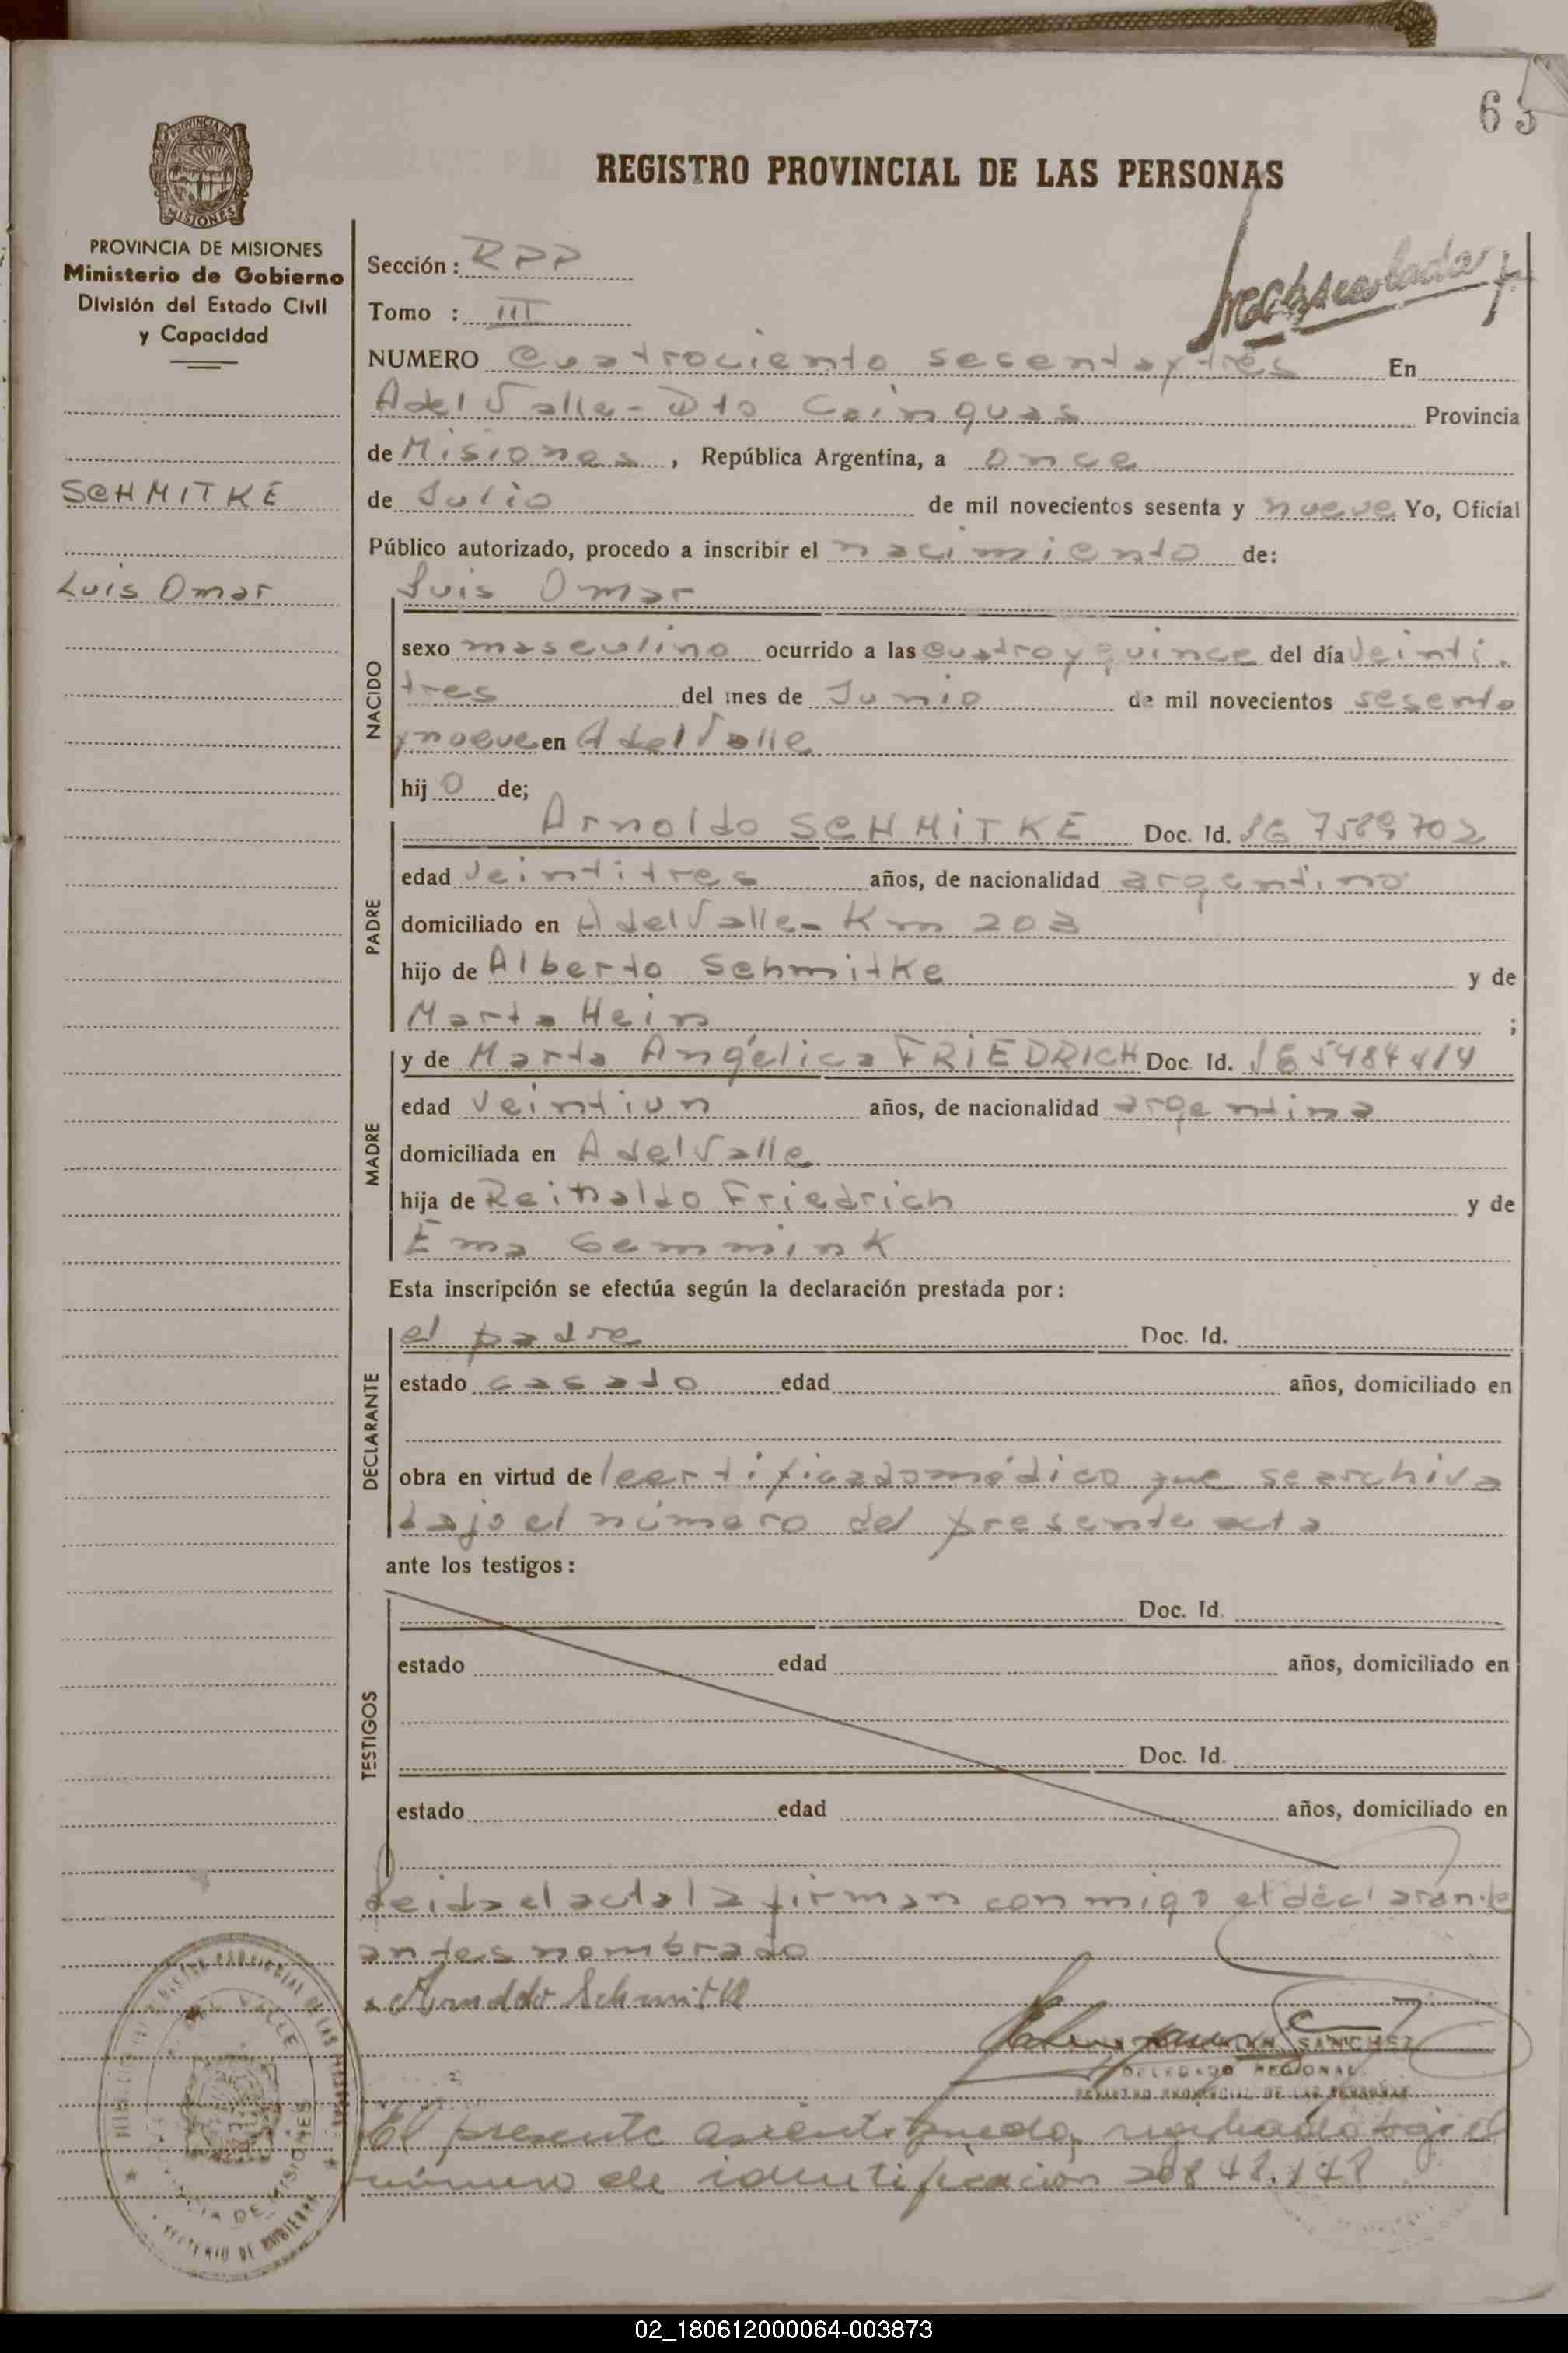 63
REGISTRO PROVINCIAL DE LAS PERSONAS
PROVINCIA DE MISIONES
Ministerio de Gobierno
División del Estado Civil
y Capacidad
SCHMITKE
Luis Omar
Sección : RPP
Tomo : III
NUMERO Cuatrociento sesenta y tres En
A del Valle - Dto Cainguas Provincia
de Misiones, República Argentina, a once
de Julio de mil novecientos sesenta y nueve Yo, Oficial
Público autorizado, procedo a inscribir el nacimiento de:
Luis Omar
NACIDO
sexo masculino ocurrido a las cuatro y quince del día Veinti.
tres del mes de Junio de mil novecientos sesenta
y nueve en A del Valle
hij o de;
PADRE
Arnoldo SCHMITKE Doc. Id. 7589702
edad Veintitres años, de nacionalidad argentino
domiciliado en A del Valle - Km 203
hijo de Alberto Schmitke y de
Marta Hein ;
MADRE
y de Marta Angélica FRIEDRICH Doc. Id.
edad Veintiun años, de nacionalidad argentina
domiciliada en A del Valle
hija de Reinaldo Friedrich y de
Ema Gemmink
Esta inscripción se efectúa según la declaración prestada por :
DECLARANTE
el padre Doc. Id.
estado casado edad años, domiciliado en
obra en virtud de certificado médico que se archiva
bajo el número del presente acta
ante los testigos :
TESTIGOS
Doc. Id.
estado edad años, domiciliado en
Doc. Id.
estado edad años, domiciliado en
Leida el acta la firman conmigo el declarante
antes nombrado
Arnoldo Schmitke
SANCHEZ
DELEGADO REGIONAL
REGISTRO PROVINCIAL DE LAS PERSONAS
El presente asiento queda registrado bajo el
número de identificación 20848.148
02_180612000064-003873